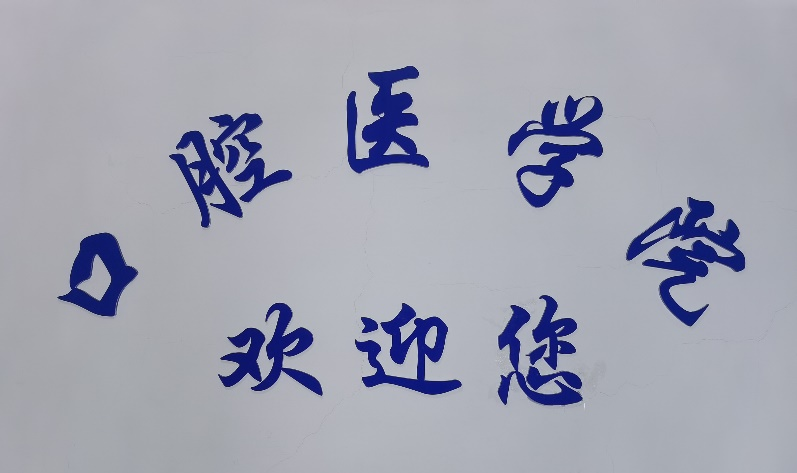 口腔医学院
欢迎您